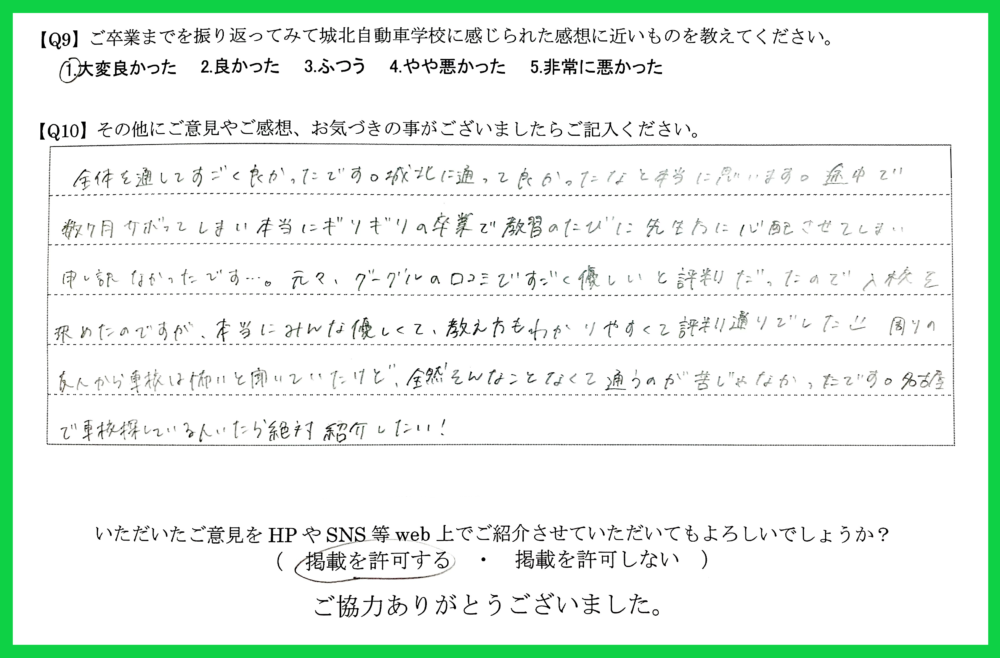 【Q9】ご卒業までを振り返ってみて城北自動車学校に感じられた感想に近いものを教えてください。
1.大変良かった 2.良かった 3.ふつう 4.やや悪かった 5.非常に悪かった
【Q10】その他にご意見やご感想、お気づきの事がございましたらご記入ください。
全体を通してすごく良かったです。城北に通って良かったなと本当に思います。途中で
数ヶ月サボってしまい本当にギリギリの卒業で教習のたびに先生方に心配させてしまい
申し訳なかったです…。元々、グーグルの口コミですごく優しいと評判だったので入校を
決めたのですが、本当にみんな優しくて、教え方もわかりやすくて評判通りでした 周りの
友人から車校は怖いと聞いていたけど、全然そんなことなくて通うのが苦じゃなかったです。名古屋
で車校探している人いたら絶対紹介したい!
いただいたご意見をHPやSNS等web上でご紹介させていただいてもよろしいでしょうか?
( 掲載を許可する ・ 掲載を許可しない )
ご協力ありがとうございました。